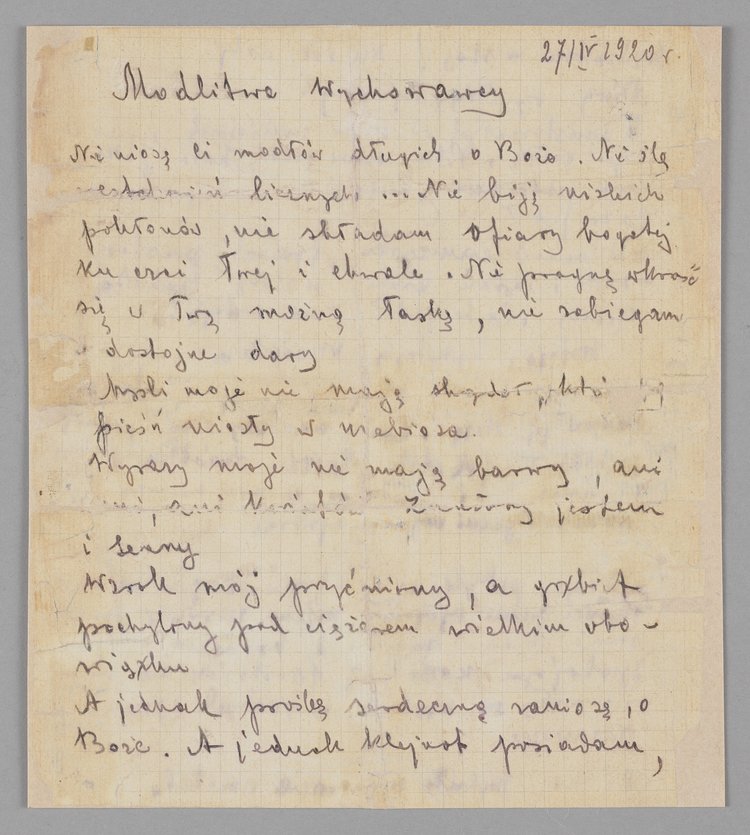 27/IV 1920 r.
Modlitwa Wychowawcy
Nie niosę Ci modłów długich o Boże. Nie ślę
westchnień licznych... Nie biję niskich
pokłonów, nie składam ofiary bogatej
ku czci Twej i chwale. Nie pragnę wkraść
się w Twą możną łaskę, nie zabiegam
dostojne dary
Myśli moje nie mają skrzydeł, które by
pieśń niosły w niebiosa.
Wyrazy moje nie mają barwy, ani
ani kwiatów Znużony jestem
i senny
Wzrok mój przyćmiony, a grzbiet
pochylony pod ciężarem wielkim obo-
wiązku
A jednak prośbę serdeczną zaniosę, o
Boże. A jednak klejnot posiadam,